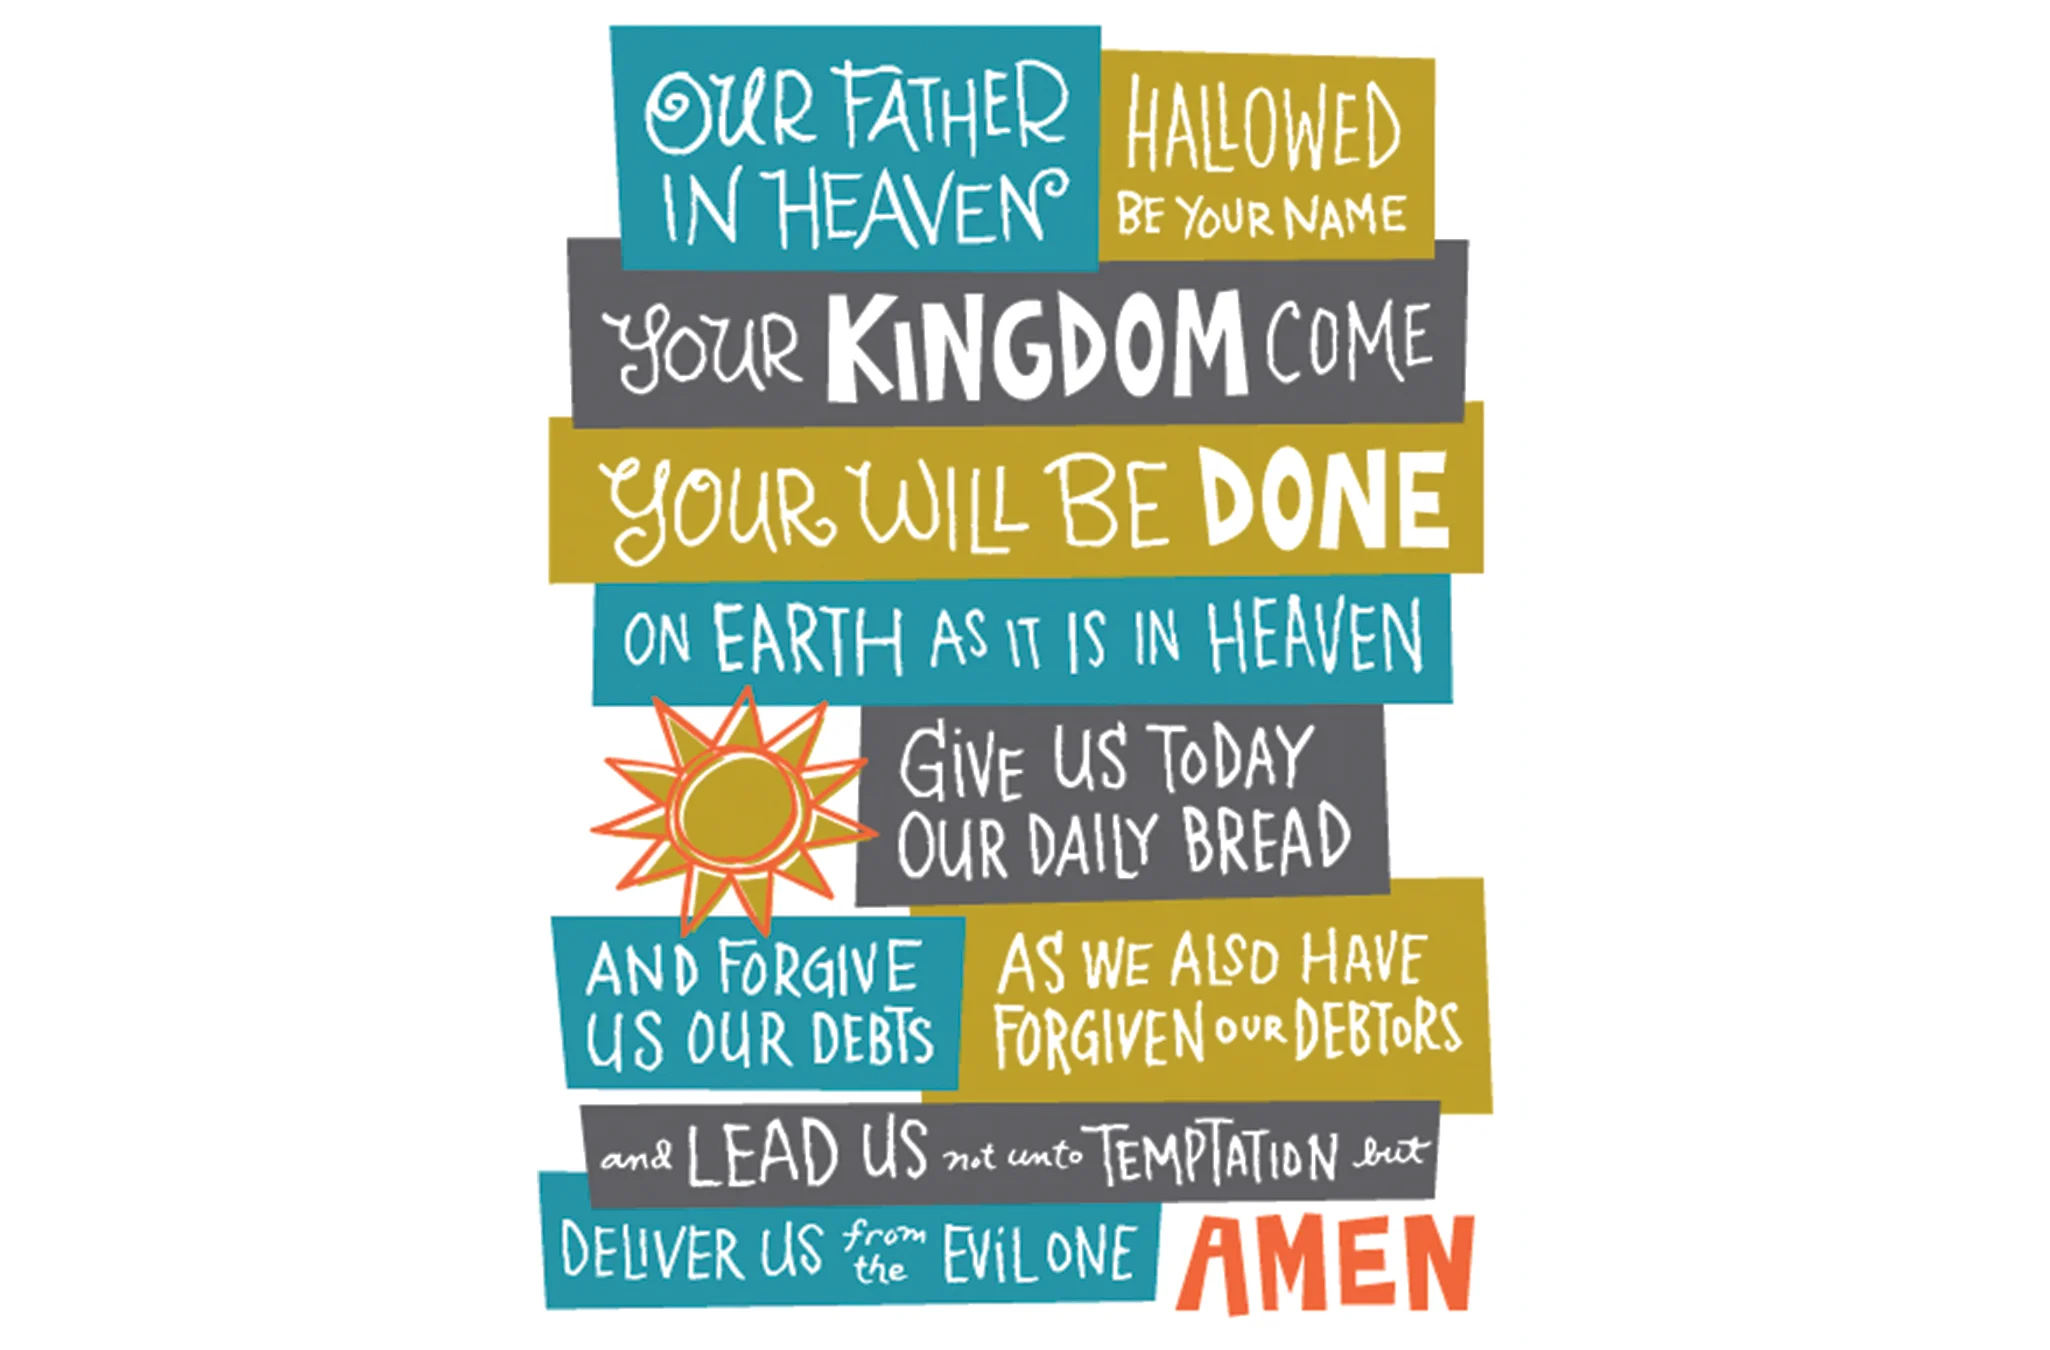 OUR FATHER
IN HEAVEN
HALLOWED
BE YOUR NAME
YOUR KINGDOM COME
YOUR WILL BE DONE
ON EARTH AS IT IS IN HEAVEN
GIVE US TODAY
OUR DAILY BREAD
AND FORGIVE
US OUR DEBTS
AS WE ALSO HAVE
FORGIVEN OUR DEBTORS
and LEAD US not unto TEMPTATION but
DELIVER US from the EVIL ONE
AMEN